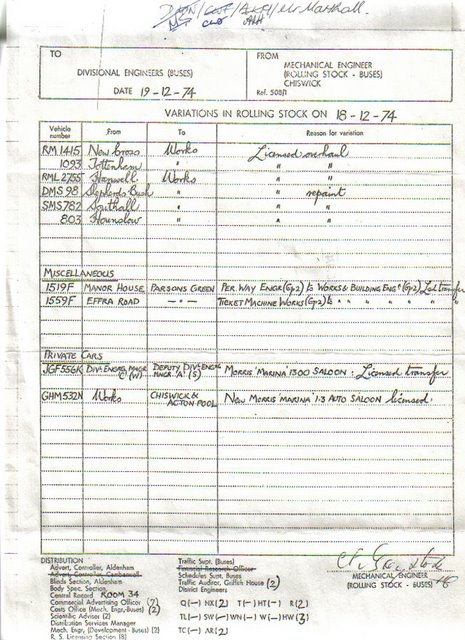 TO
DIVISIONAL ENGINEERS (BUSES)
DATE 19-12-74
FROM
MECHANICAL ENGINEER
(ROLLING STOCK - BUSES)
CHISWICK
Ref. 508/1
VARIATIONS IN ROLLING STOCK ON 18-12-74
Vehicle number From To Reason for variation
RM 1415 New Cross Works Licensed overhaul
1093 Tottenham " " "
RML 2755 Hanwell Works " "
DMS 98 Shepherds Bush " " repaint
SMS 782 Southall " " "
803 Hounslow " " "
MISCELLANEOUS
1519F MANOR HOUSE PARSONS GREEN PER WAY ENGR (Gp2) to WORKS & BUILDING ENGR (Gp2) Lcd transfer
1559F EFFRA ROAD — " — TICKET MACHINE WORKS (Gp2) to " " " " "
PRIVATE CARS
JGF556K DIVL ENGRG MNGR 'C' (W) DEPUTY DIVL ENGRG MNGR 'A' (S) MORRIS 'MARINA' 1300 SALOON. Licensed transfer
GHM532N Works CHISWICK & ACTON POOL NEW MORRIS 'MARINA' 1·3 AUTO SALOON licensed.
MECHANICAL ENGINEER
(ROLLING STOCK - BUSES)
DISTRIBUTION
Advert. Controller, Aldenham
Advert. Controller Camberwell
Blinds Section, Aldenham
Body Spec. Section
Central Record ROOM 34
Commercial Advertising Officer (7)
Costs Office (Mech. Engr.-Buses) (2)
Scientific Adviser (2)
Distribution Services Manager
Mech. Engr. (Development - Buses) (2)
R. S. Licensing Section (8)
Traffic Supt. (Buses)
Financial Research Officer
Schedules Supt. Buses
Traffic Auditor, Griffith House (2)
District Engineers
Q (—) NX (2) T (—) HT (—) R (2)
TL (—) SW (—) WN (—) W (—) HW (3)
TC (—) AR (2)